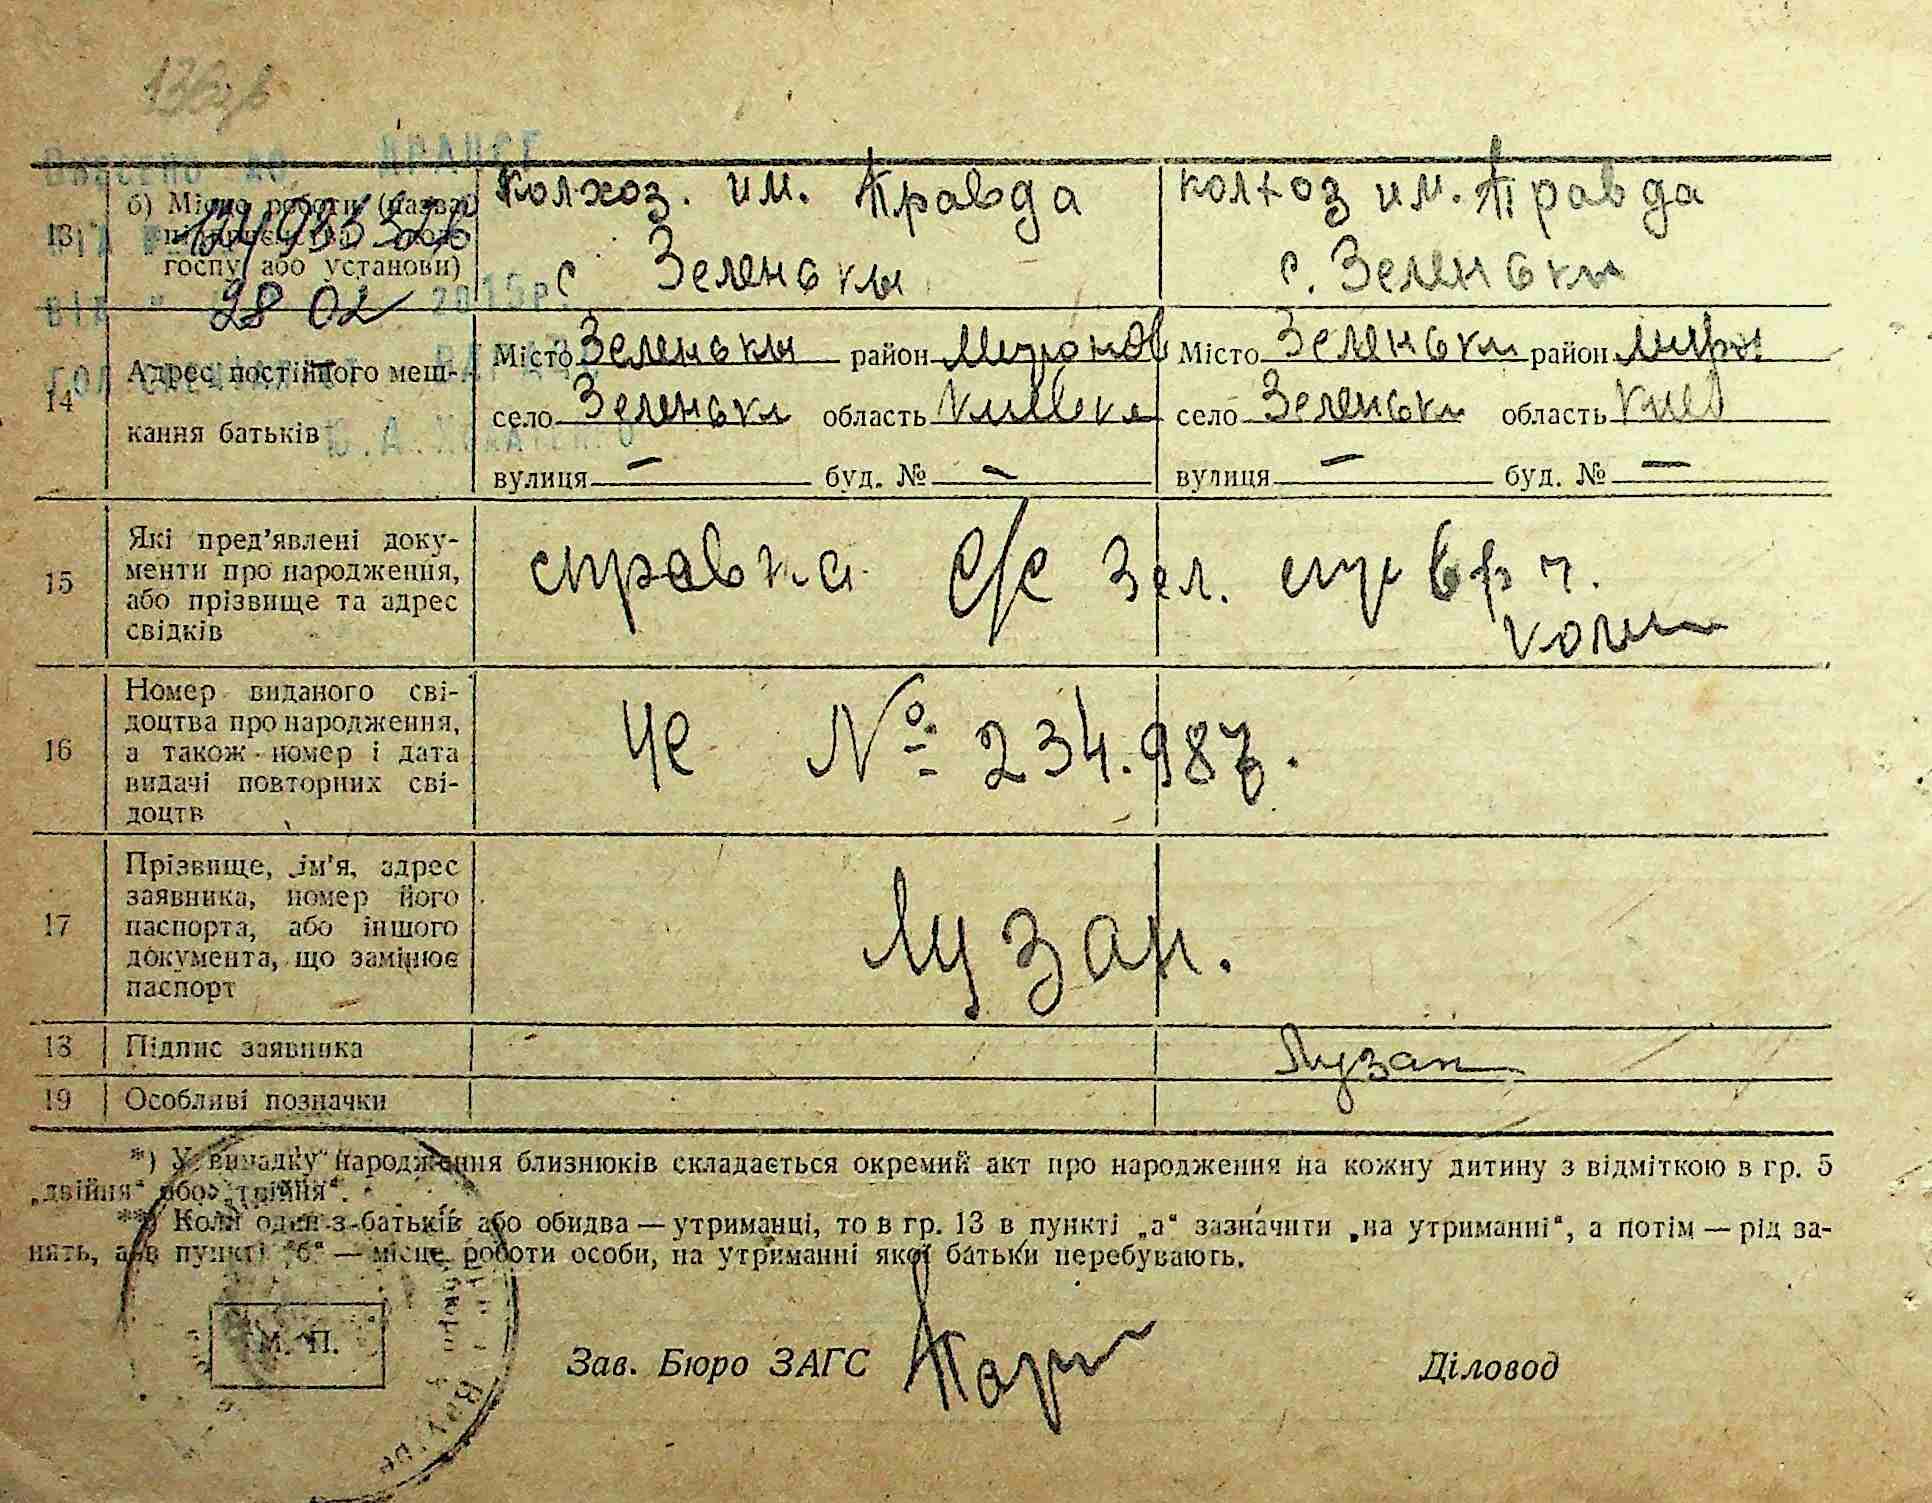 Внесено до ДРАЦСГ
13 б) Місце роботи (назва
госпу або установи)
Колхоз. им. Правда
с Зеленьки
колхоз им. Правда
с. Зеленьки
28 02 2015р.
14 Адрес постійного меш-
кання батьків
Місто Зеленьки район Миронов
село Зеленьки область
вулиця — буд. № —
Місто Зеленьки район Мирон
село Зеленьки область Киев
вулиця — буд. № —
15 Які пред'явлені доку-
менти про народження,
або прізвище та адрес
свідків
справка с/с Зел.
16 Номер виданого сві-
доцтва про народження,
а також номер і дата
видачі повторних сві-
доцтв
ЧС № 234.987.
17 Прізвище, ім'я, адрес
заявника, номер його
паспорта, або іншого
документа, що замінює
паспорт
Лузан.
18 Підпис заявника
Лузан
19 Особливі позначки
*) У випадку народження близнюків складається окремий акт про народження на кожну дитину з відміткою в гр. 5
„двійня“ або „трійня“.
**) Коли один з батьків або обидва — утриманці, то в гр. 13 в пункті „а“ зазначити „на утриманні“, а потім — рід за-
нять, а в пункті „б“ — місце роботи особи, на утриманні якої батьки перебувають.
М. П.
Зав. Бюро ЗАГС
Діловод